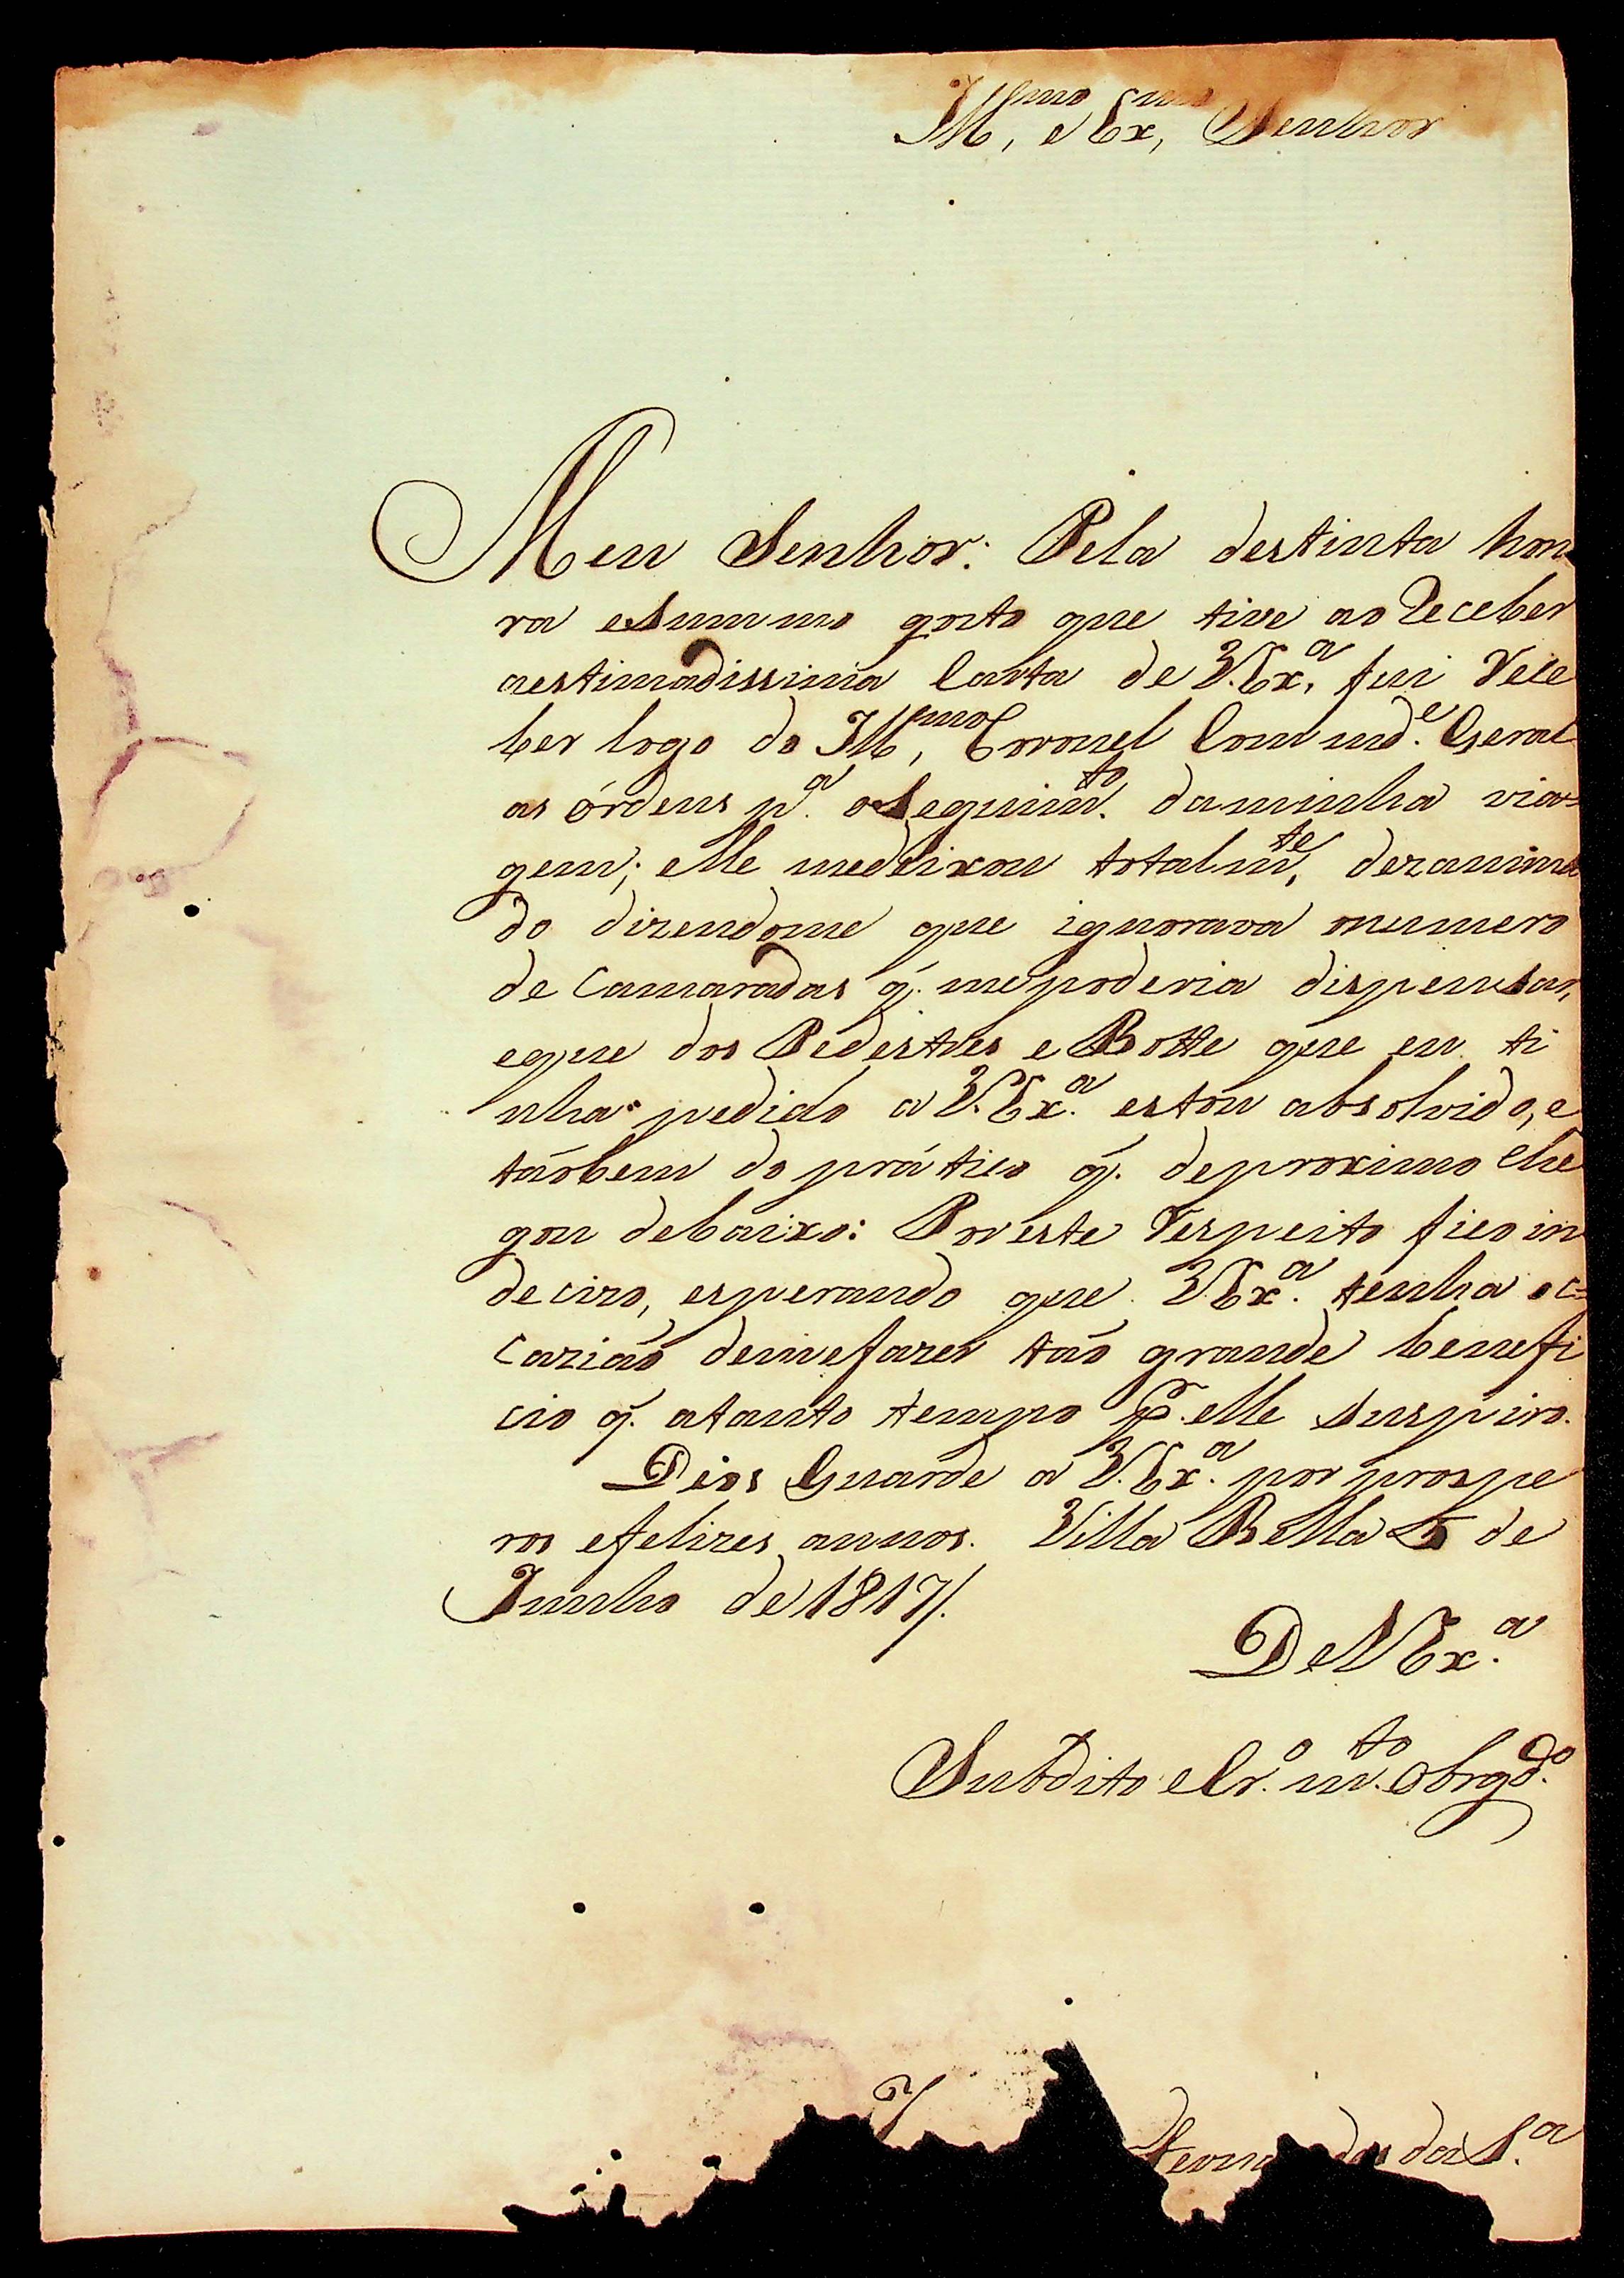 Ill.mo e Ex.mo Senhor
Meu Senhor: Pela destinta hon
ra eSummo gosto que tive ao Receber
aestimadissima Carta de V.Ex.a, fui Rece
ber logo do Ill.mo Coronel Comm.de Geral
as órdens p.a oSeguim.to daminha via=
gem; elle medeixou totalm.te dezanima
do dizendome que ignorava onumero
de Camaradas q. mepoderia dispensar,
eque dos Pedestres e Botte que eu ti
nha pedido a V.Ex.a estou absolvido, e
tãobem do prático q. deproximo che
gou debaixo: Por este Respeito fico in
decizo, esperando que V.Ex.a tenha oc=
cazião demefazer tão grande benefi
cio q. atanto tempo p.r elle suspiro.
Deos Guarde a V.Ex.a por prospe
ros efelizes annos. Villa Bella 5 de
Junho de 1817/.
DeVEx.a
Subdito eCr.o m.to Obrgd.o
da S.a